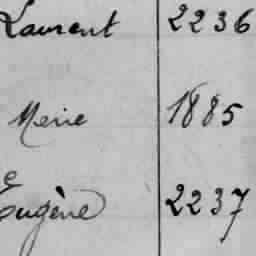 Laurent 2236
Merie 1885
e
Eugène 2237